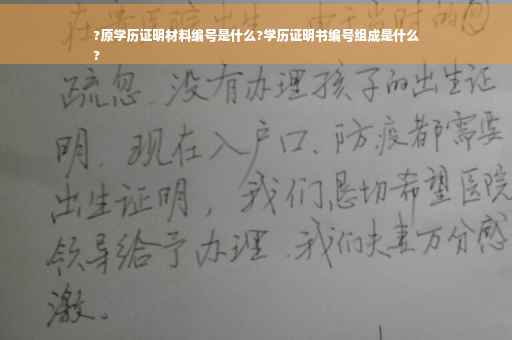 ?原学历证明材料编号是什么?学历证明书编号组成是什么
?
疏忽.没有办理孩子的出生证
明.现在入户口、防疫都需要
出生证明，我们恳切希望医院
领导给予办理.我们夫妻万分感
激。